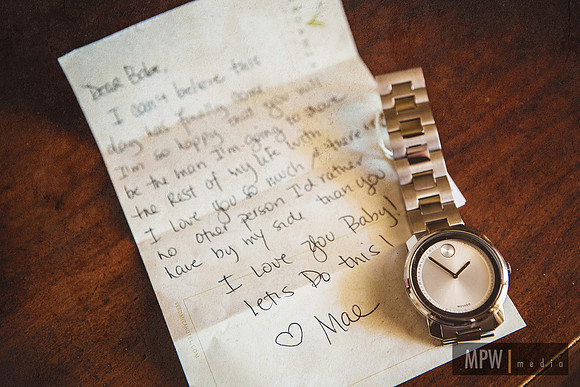 Dear Babe,
I can't believe this
day has finally come
I'm so happy that you will
be the man I'm going to share
the Rest of my life with
I love you so much & there's
no other person I'd rather
have by my side than you
I love you Baby!
let's Do this!
♡ Mae
MOVADO
MPW | media